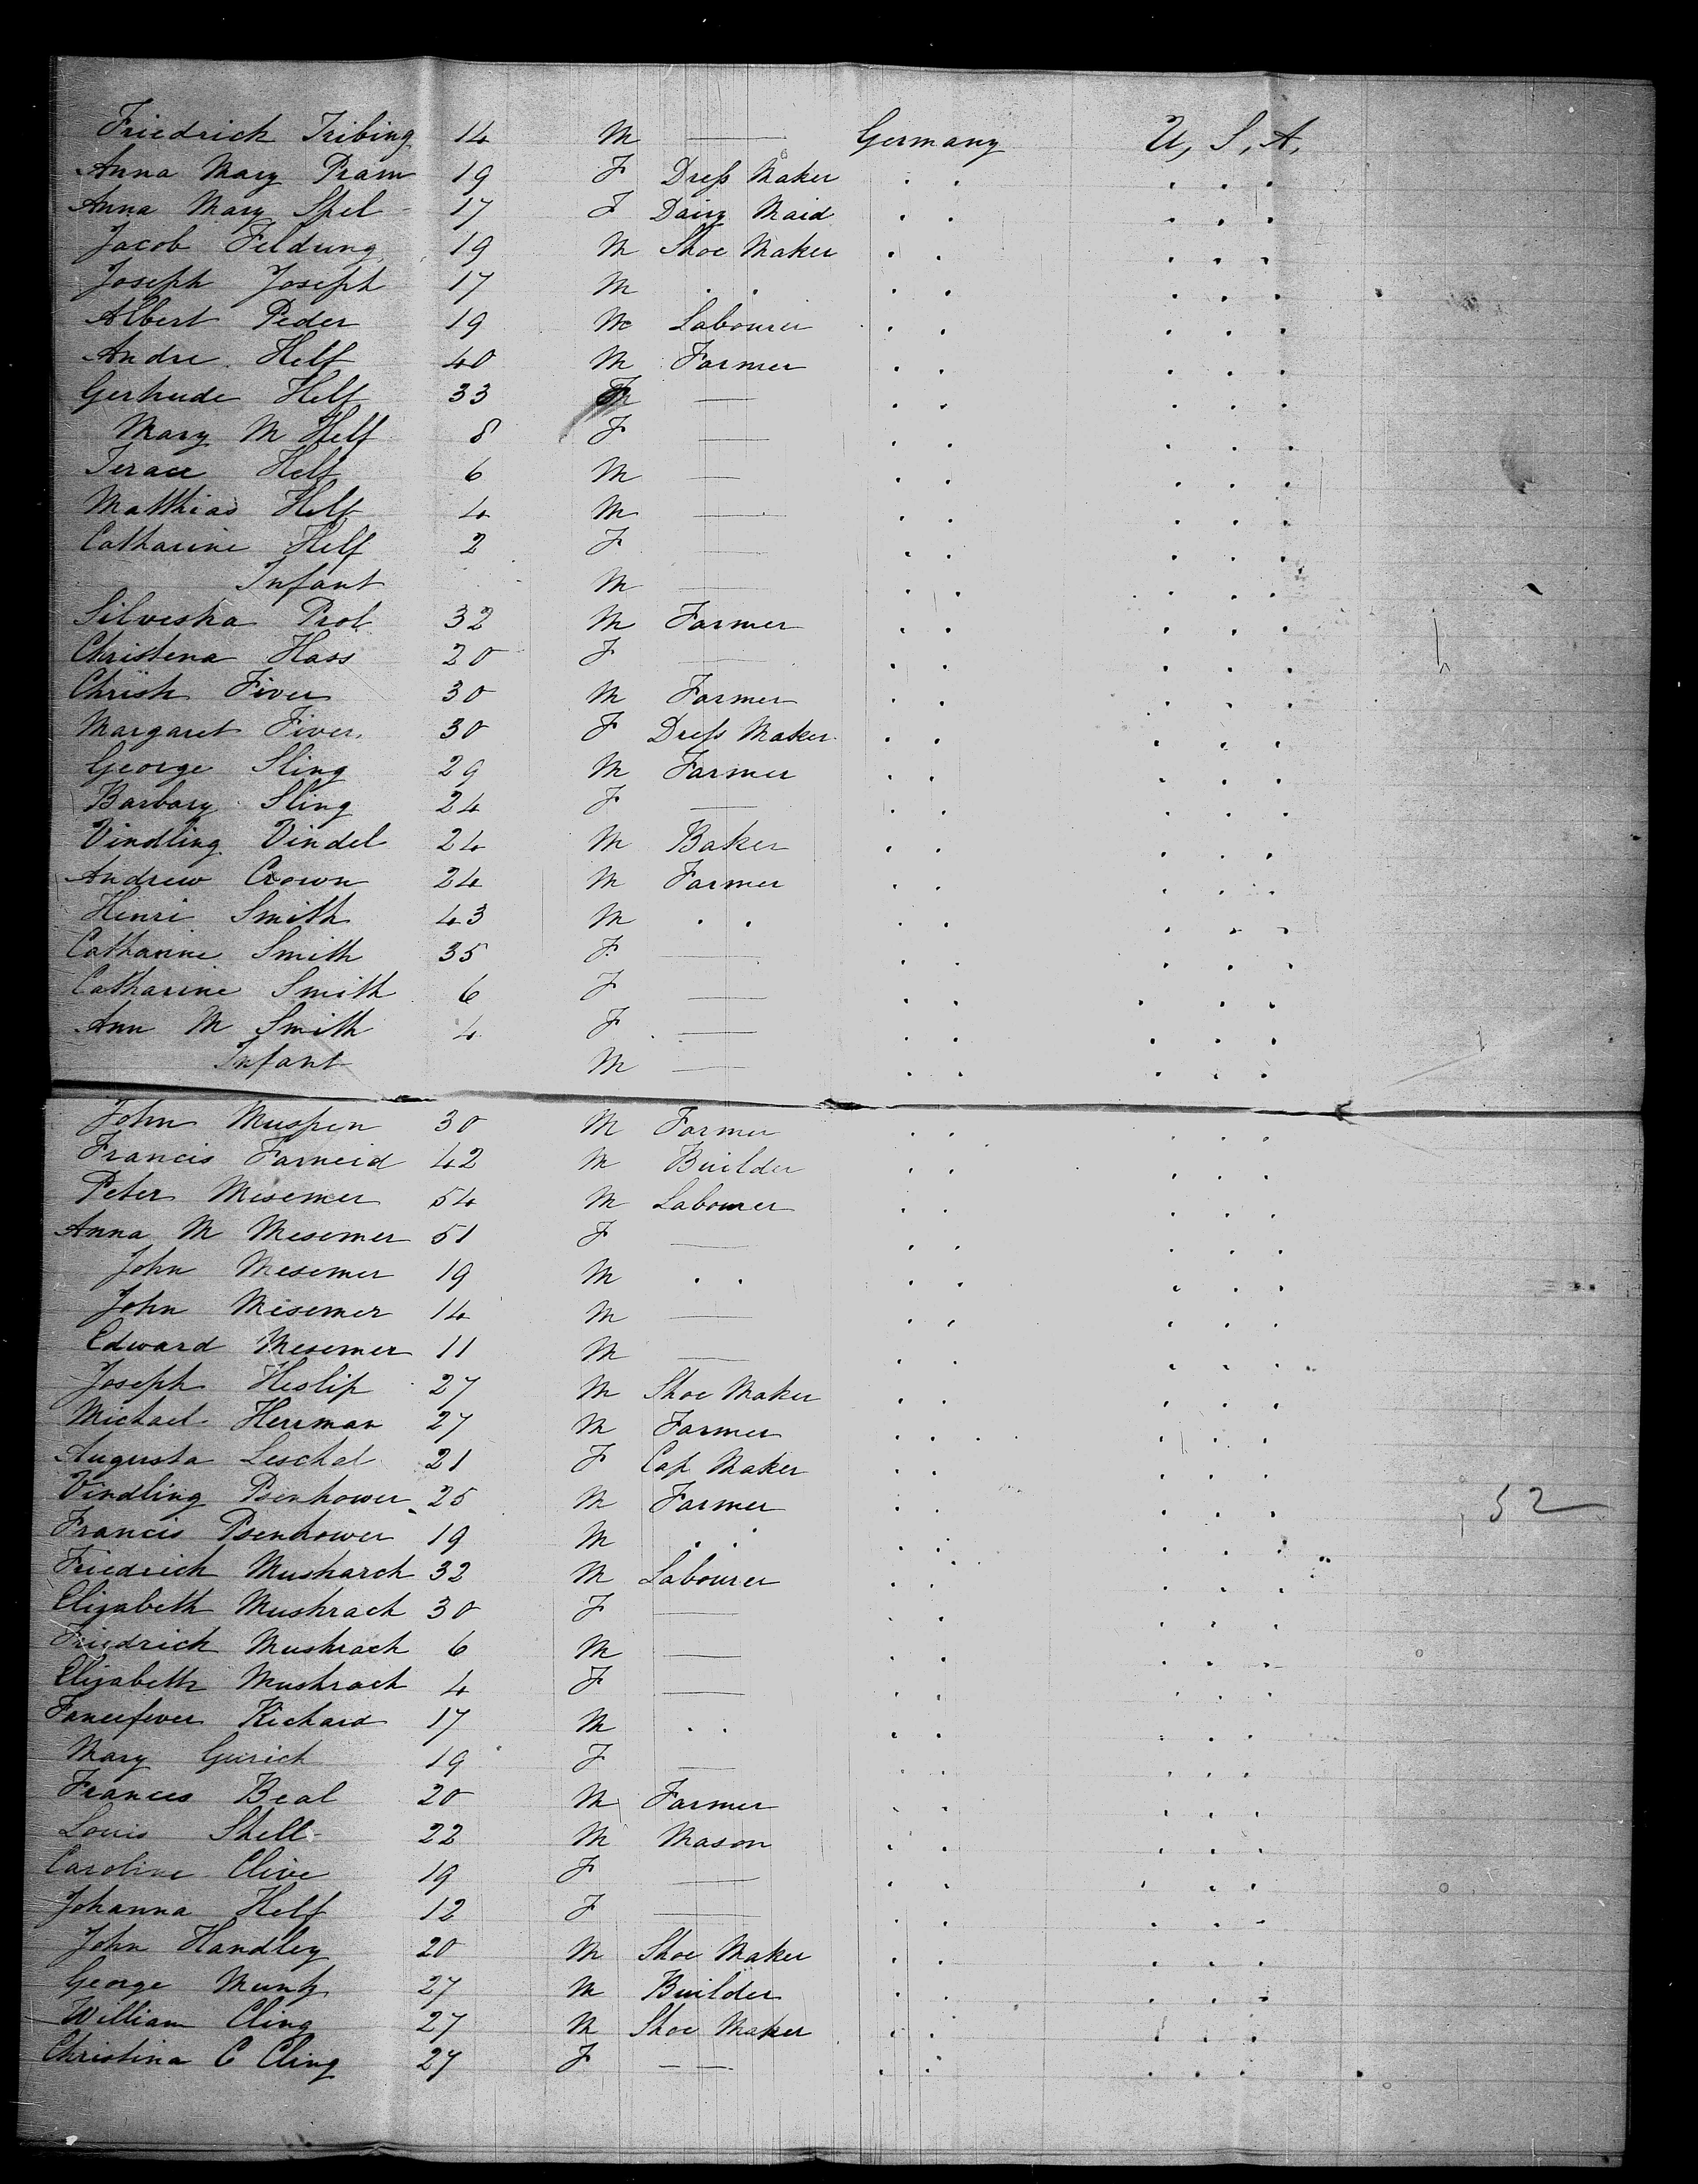 Friedrich Tribing 14 M — Germany U, S, A,
Anna Mary Pram 19 F Dress Maker . . . . .
Anna Mary Spel 17 F Dairy Maid . . . . .
Jacob Feldung 19 M Shoe Maker . . . . .
Joseph Joseph 17 M . . . . . . .
Albert Peder 19 M Labourer . . . . .
Andre Helf 40 M Farmer . . . . .
Gertrude Helf 33 F — . . . . .
Mary M Helf 8 F — . . . . .
Terace Helf 6 M — . . . . .
Matthias Helf 4 M — . . . . .
Catharine Helf 2 F — . . . . .
Infant M — . . . . .
Silvestra Prot 32 M Farmer . . . . .
Christena Hass 20 F — . . . . .
Christ Fiver 30 M Farmer . . . . .
Margaret Fiver 30 F Dress Maker . . . . .
George Sling 29 M Farmer . . . . .
Barbary Sling 24 F — . . . . .
Vindling Vindel 24 M Baker . . . . .
Andrew Crown 24 M Farmer . . . . .
Henri Smith 43 M . . . . . . .
Catharine Smith 35 F — . . . . .
Catharine Smith 6 F — . . . . .
Ann M Smith 4 F — . . . . .
Infant M — . . . . .
John Muspen 30 M Farmer . . . . .
Francis Farneid 42 M Builder . . . . .
Peter Mesemer 54 M Labourer . . . . .
Anna M Mesemer 51 F — . . . . .
John Mesemer 19 M . . . . . . .
John Mesemer 14 M — . . . . .
Edward Mesemer 11 M — . . . . .
Joseph Heslip 27 M Shoe Maker . . . . .
Michael Herrman 27 M Farmer . . . . .
Augusta Leschel 21 F Cap Maker . . . . .
Vindling Psenhower 25 M Farmer . . . . . 52
Francis Psenhower 19 M . . . . . . .
Friedrich Musharch 32 M Labourer . . . . .
Elizabeth Mushrach 30 F — . . . . .
Friedrich Mushrach 6 M — . . . . .
Elizabeth Mushrach 4 F — . . . . .
Fancefever Richard 17 M . . . . . . .
Mary Gurich 19 F — . . . . .
Frances Beal 20 M Farmer . . . . .
Louis Shell 22 M Mason . . . . .
Caroline Clive 19 F — . . . . .
Johanna Helf 12 F — . . . . .
John Handley 20 M Shoe Maker . . . . .
George Muntz 27 M Builder . . . . .
William Cling 27 M Shoe Maker . . . . .
Christina C Cling 27 F — — . . . . .